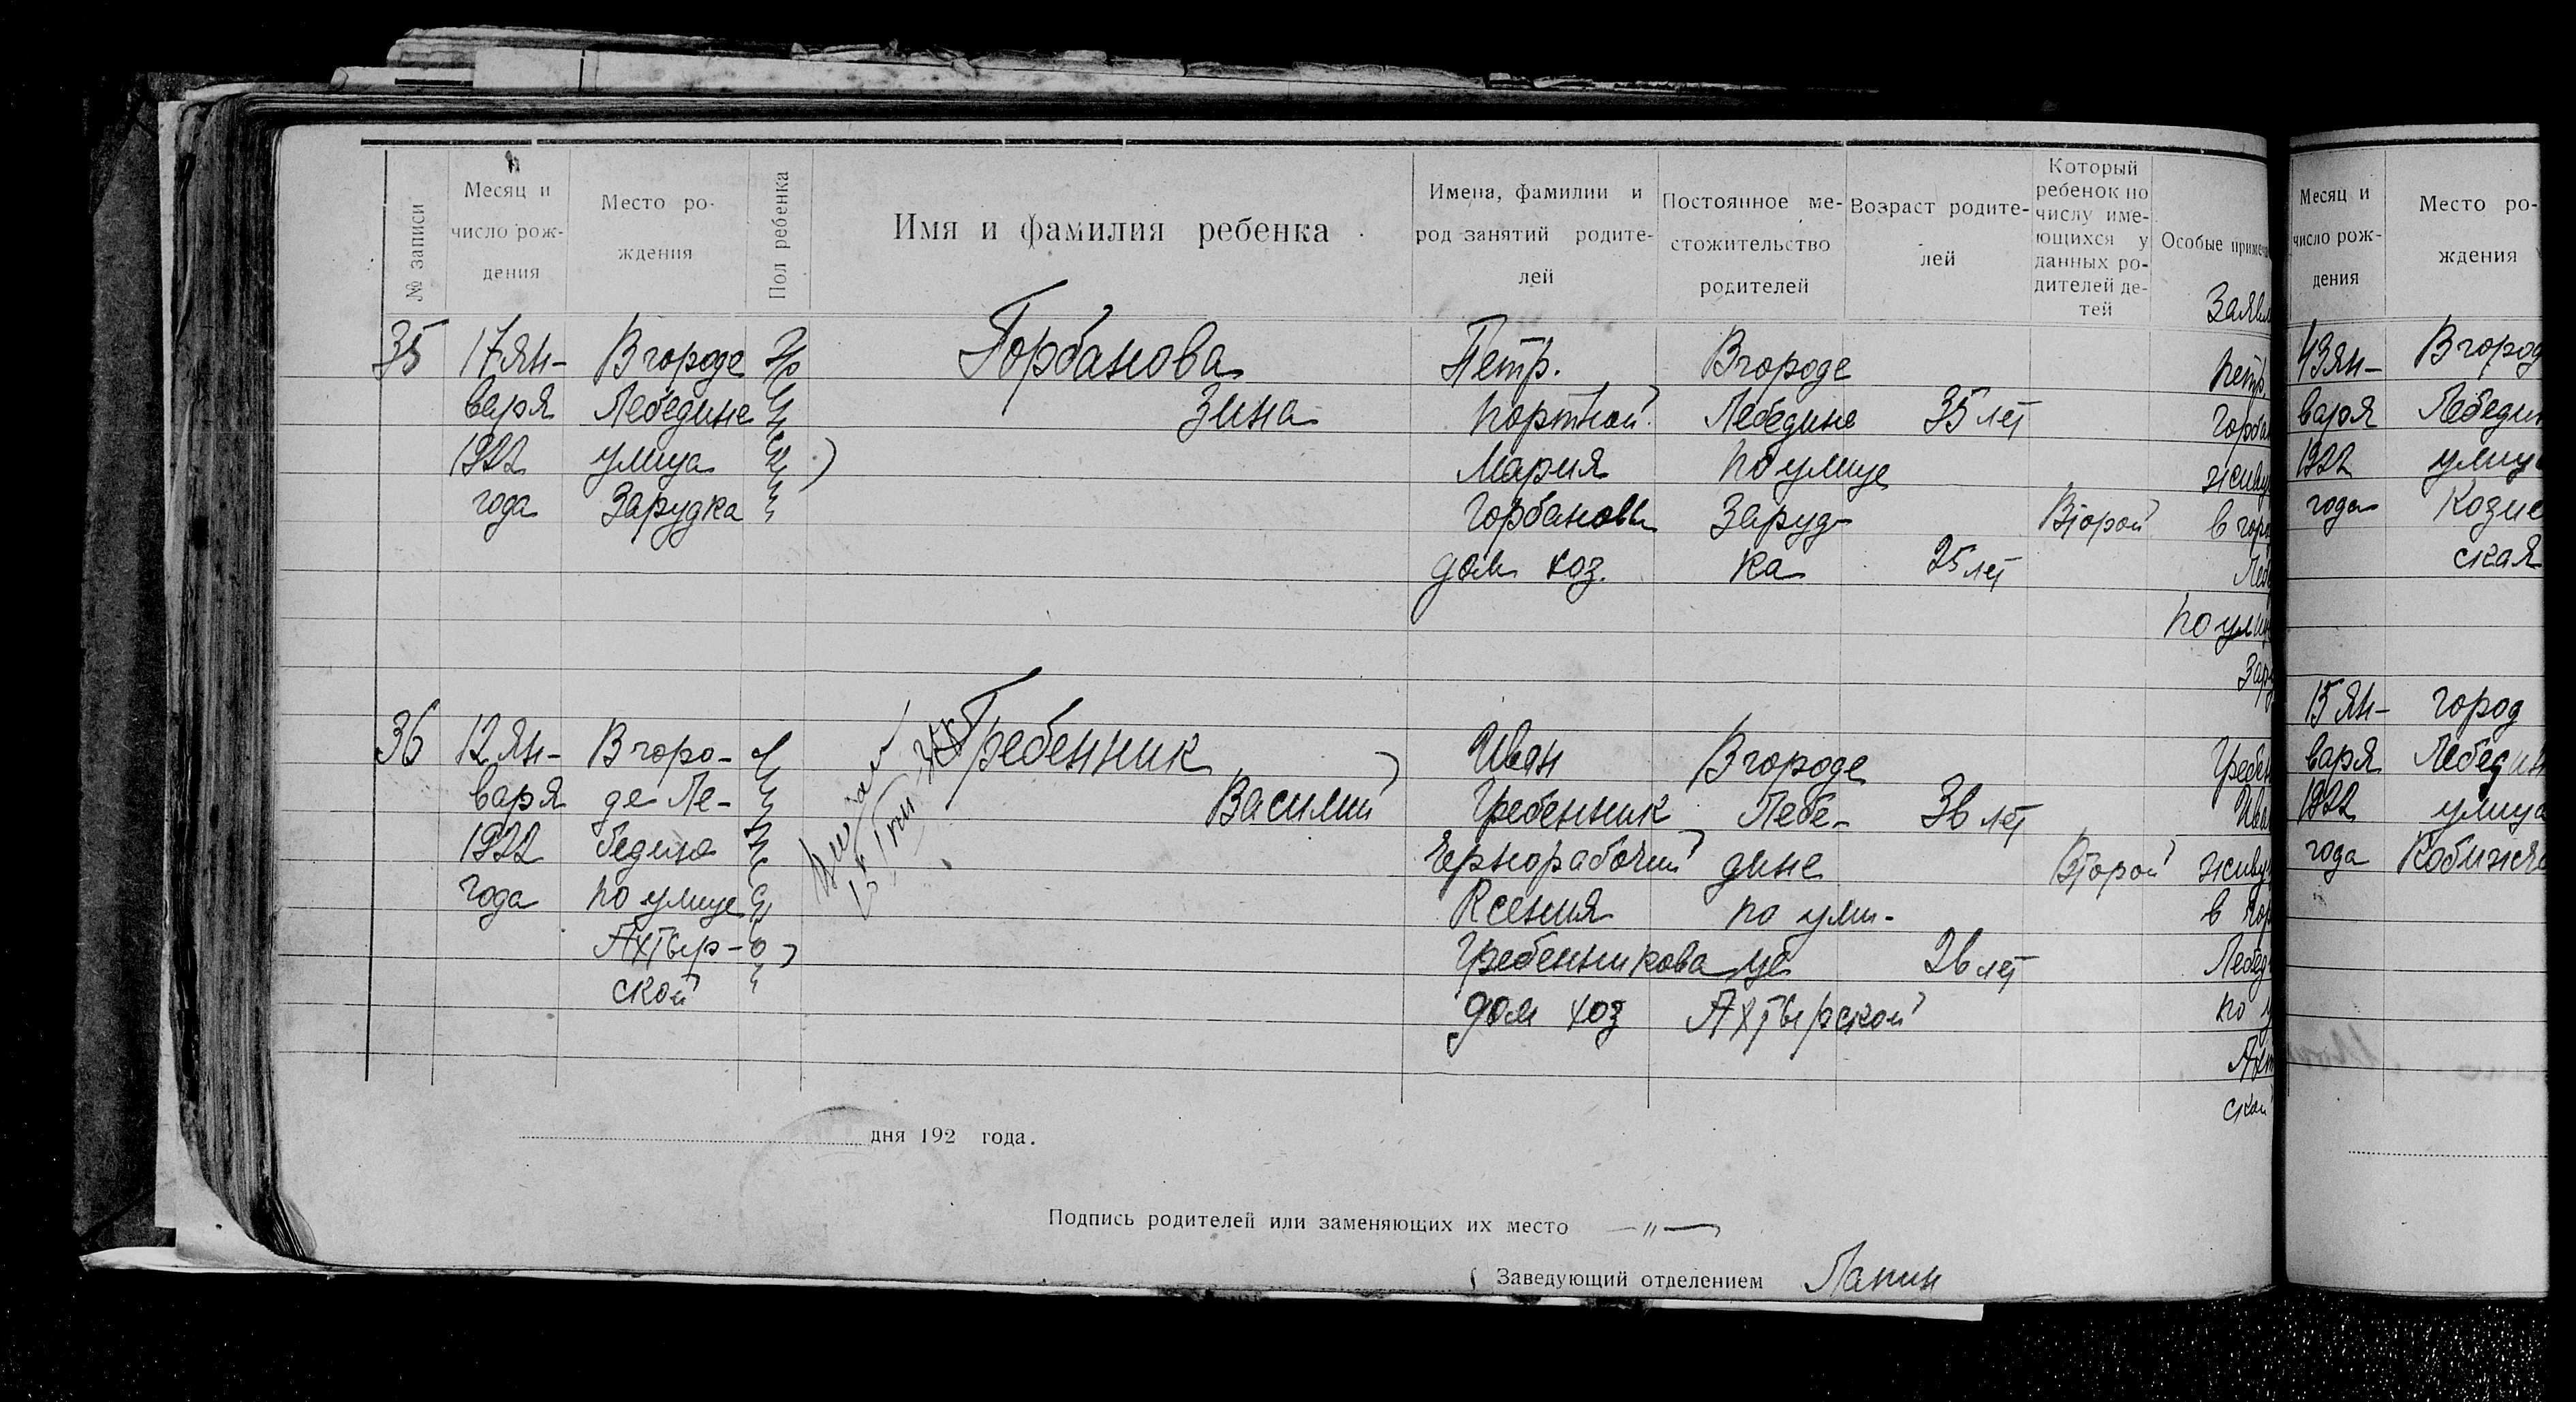 № записи
Месяц и число рож-дения
Место ро-ждения
Пол ребенка
Имя и фамилия ребенка
Имена, фамилии и род занятий родите-лей
Постоянное ме-стожительство родителей
Возраст родите-лей
Который ребенок по числу име-ющихся у данных ро-дителей де-тей
Особые примеч
Заяви
35
17 Ян-
варя
1922
года
В городе
Лебедине
улица
Зарудка
Горбанова
Зина
Петр.
портной
Мария
Горбановы
дом хоз.
В городе
Лебедине
по улице
Заруд-
ка
35 лет
25 лет
Второй
Петр
Горба
живу
в горо
Лебе
по улиц
Зару
36
12 Ян-
варя
1922
года
В горо-
де Ле-
бедине
по улице
Ахтыр-
ской
Гребенник
Василий
Иван
Гребенник
Чернорабочий
Ксения
Гребенникова
дом хоз
В городе
Лебе-
дине
по ули-
це
Ахтырской
36 лет
26 лет
Второй
Гребен
Иван
живу
в гор
Лебед
по у
Ахт
ской
дня 192 года.
Подпись родителей или заменяющих их место
Заведующий отделением Панин
Месяц и число рож-дения
Место ро-ждения
13 Ян-
варя
1922
года
В город
Лебедин
улиц
Козие
ская
15 Ян-
варя
1922
года
город
Лебедин
улица
Кобижча